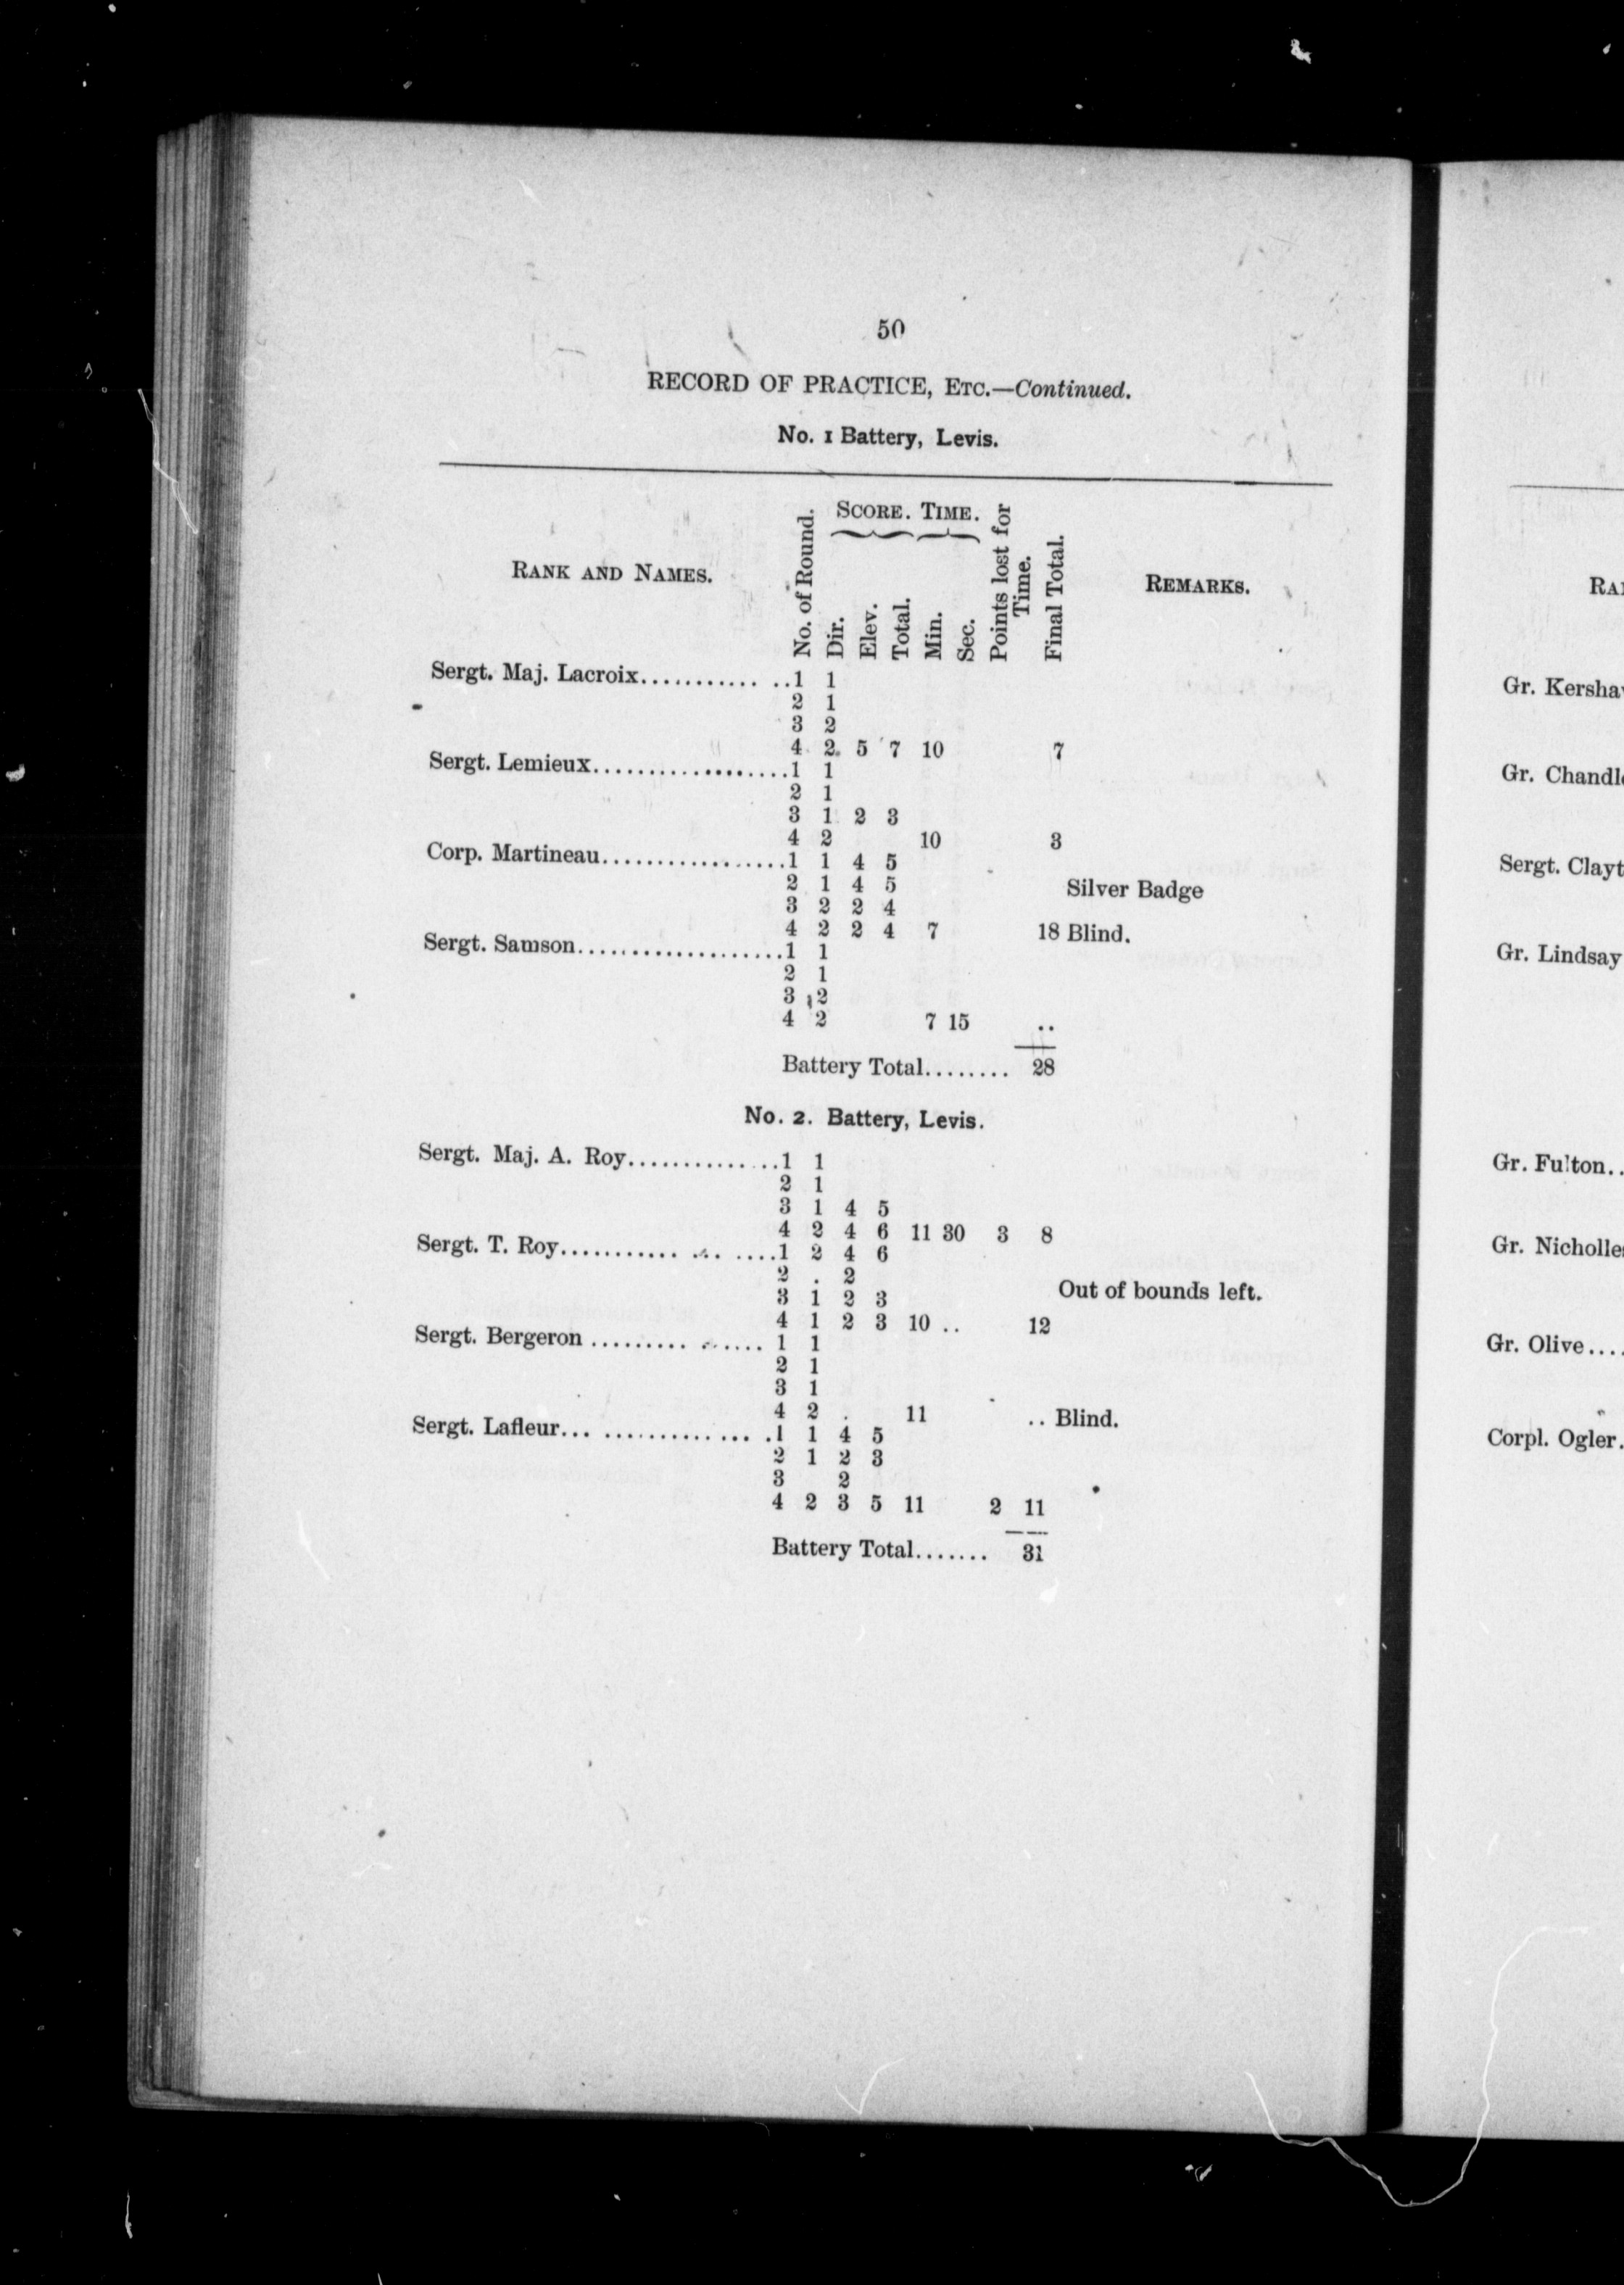 50
RECORD OF PRACTICE, ETC.—Continued.
No. 1 Battery, Levis.
RANK AND NAMES.
No. of Round.
SCORE. TIME.
Dir.
Elev.
Total.
Min.
Sec.
Points lost for
Time.
Final Total.
REMARKS.
Sergt. Maj. Lacroix........... ..1 1
2 1
3 2
4 2 5 7 10 7
Sergt. Lemieux..................1 1
2 1
3 1 2 3
4 2 10 3
Corp. Martineau.................1 1 4 5
2 1 4 5 Silver Badge
3 2 2 4
4 2 2 4 7 18 Blind.
Sergt. Samson...................1 1
2 1
3 2
4 2 7 15 ..
Battery Total........ 28
No. 2. Battery, Levis.
Sergt. Maj. A. Roy..............1 1
2 1
3 1 4 5
4 2 4 6 11 30 3 8
Sergt. T. Roy........... .. ....1 2 4 6
2 . 2
3 1 2 3 Out of bounds left.
4 1 2 3 10 .. 12
Sergt. Bergeron ......... ...... 1 1
2 1
3 1
4 2 . 11 .. Blind.
Sergt. Lafleur... ............... .1 1 4 5
2 1 2 3
3 2
4 2 3 5 11 2 11
Battery Total....... 31
Gr.
Gr.
Sergt.
Gr. Lindsay
Gr. Fulton..
Gr.
Gr. Olive....
Corpl. Ogler.